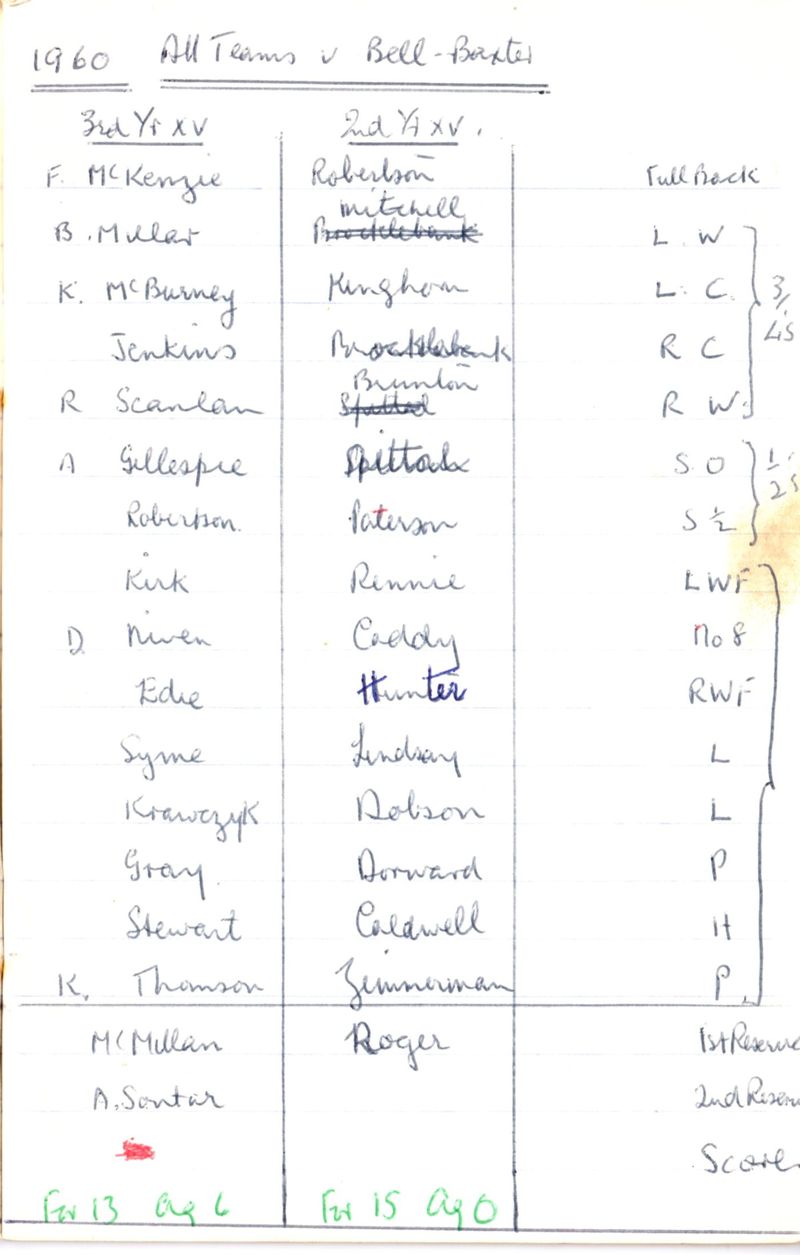 1960 All Teams v Bell-Baxter
3rd Yr XV 2nd Yr XV.
F. McKenzie Robertson Full Back
Mitchell
B. Millar Brocklebank L W
K. McBurney Kinghorn L. C. 3/4s
Jenkins Brocklebank R C
Brunton
R Scanlan R W.
A Gillespie Pittock S O 1/2s
Robertson. Paterson S 1/2
Kirk Rennie LWF
D. Niven Caddy No 8
Edie Hunter RWF
Syme Lindsay L
Krawczyk Dobson L
Gray Dorward P
Stewart Caldwell H
K. Thomson Zimmerman P.
McMillan Roger 1st Reserve
A. Soutar 2nd Reserv
Score
For 13 Ag 6 For 15 Ag 0